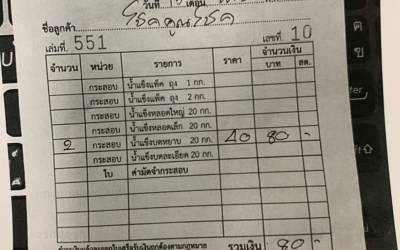 วันที่ เดือน
ชื่อลูกค้า โชคคูณโชค
เล่มที่ 551 เลขที่ 10
จำนวน หน่วย รายการ ราคา จำนวนเงิน
บาท สต.
กระสอบ น้ำแข็งแพ็ค ถุง 1 กก.
กระสอบ น้ำแข็งแพ็ค ถุง 2 กก.
กระสอบ น้ำแข็งหลอดใหญ่ 20 กก.
กระสอบ น้ำแข็งหลอดเล็ก 20 กก.
2 กระสอบ น้ำแข็งบดหยาบ 20 กก. 40 80 -
กระสอบ น้ำแข็งบดละเอียด 20 กก.
ใบ ค่ามัดจำกระสอบ
รวมเงิน 80 -